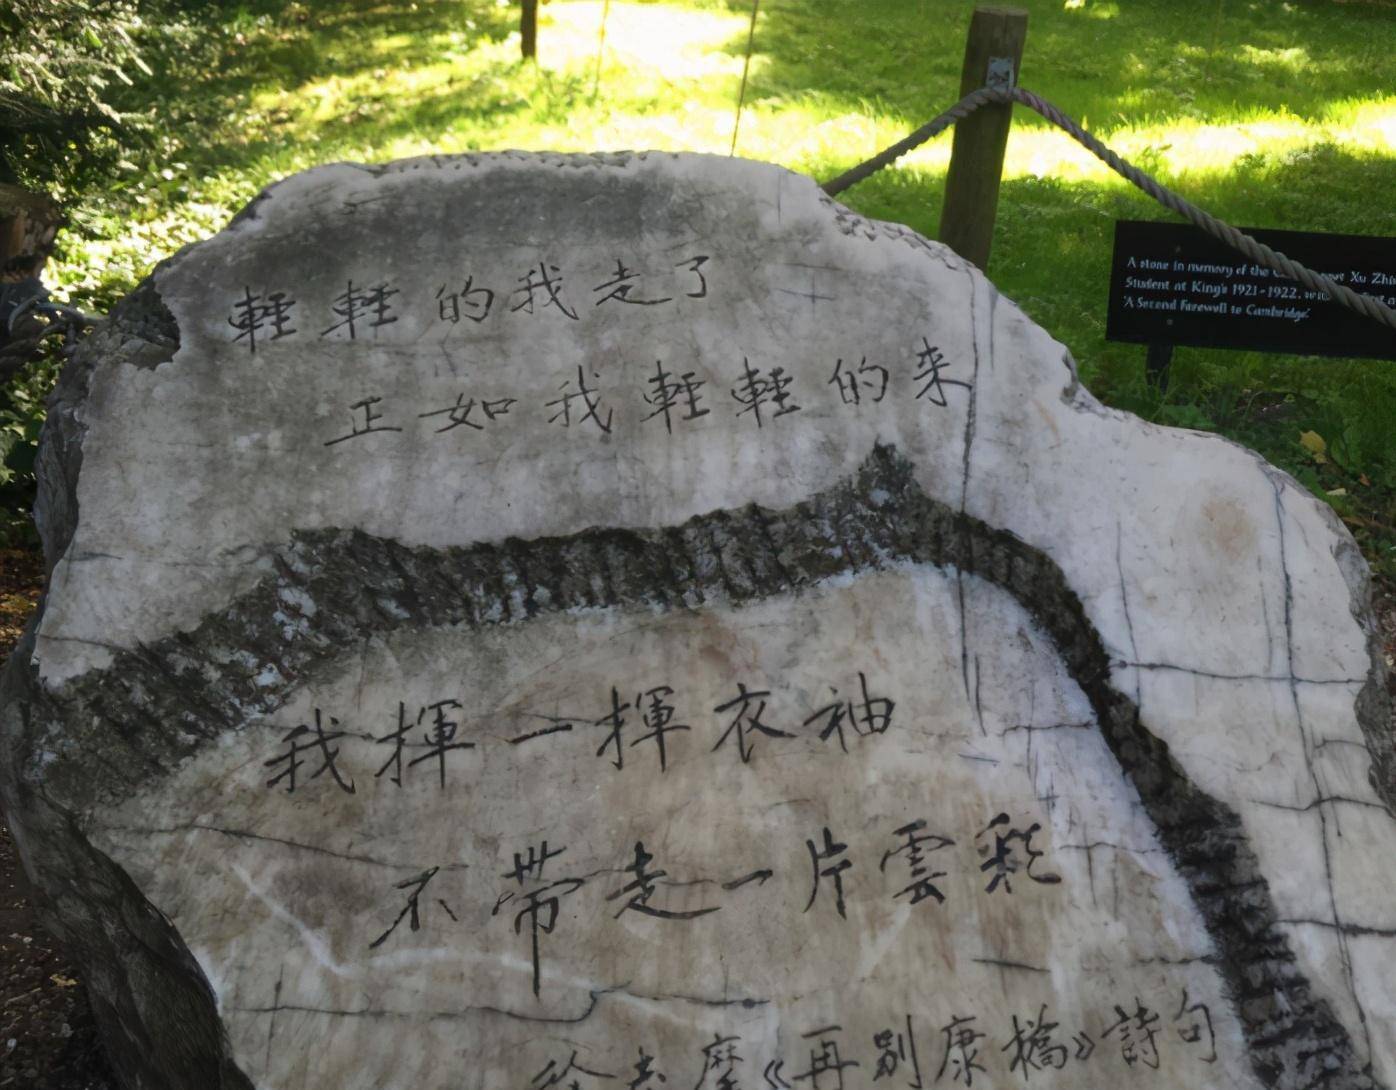 輕輕的我走了
正如我輕輕的来
我揮一揮衣袖
不帶走一片雲彩
徐志摩《再别康橋》詩句
A stone in memory of the Xu Zhi
Student at King's 1921-1922,
'A Second Farewell to Cambridge'.